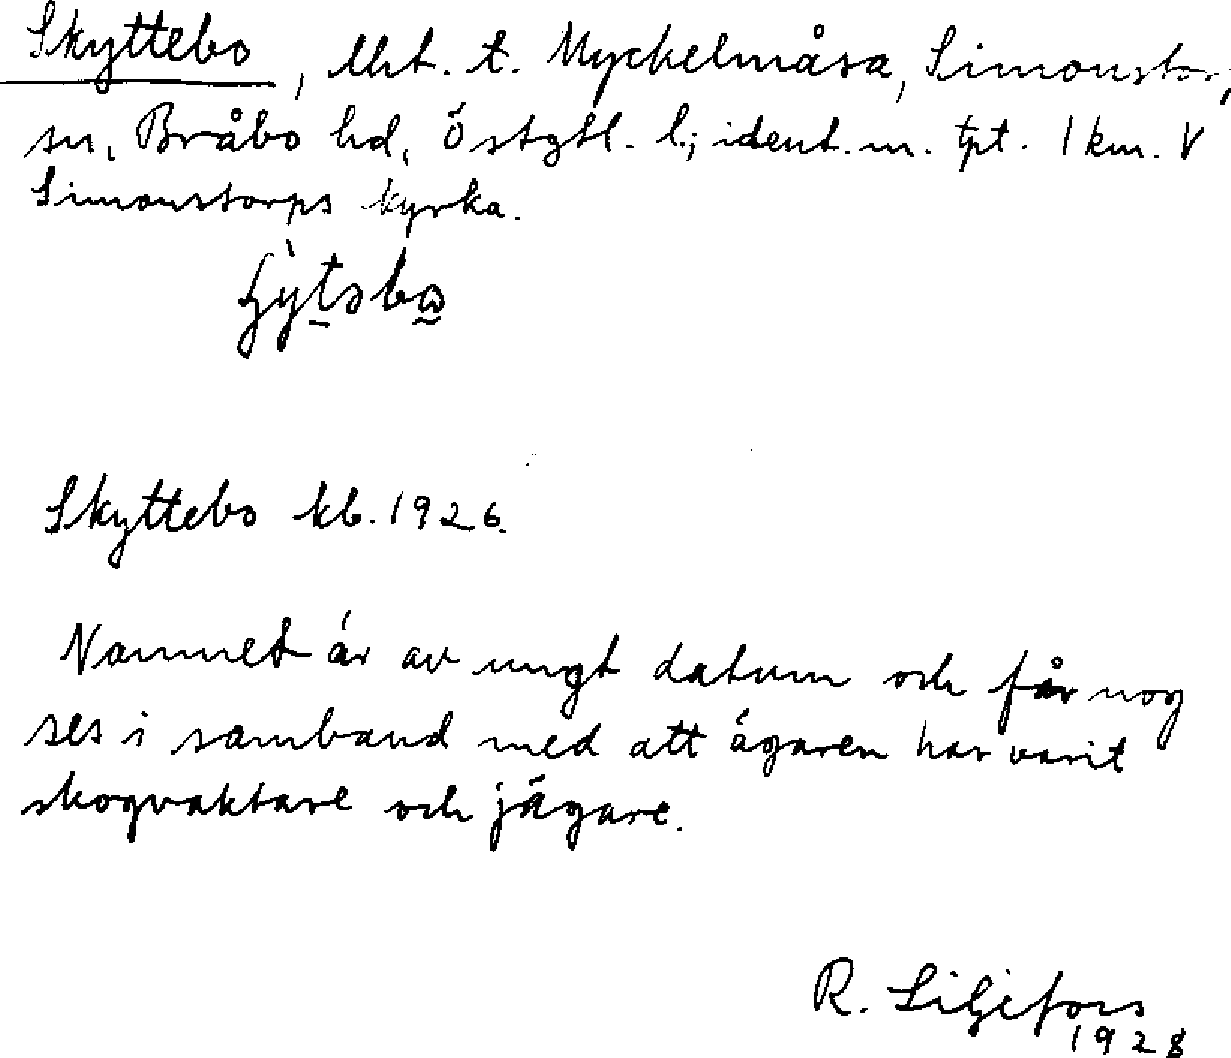 Skyttebo, lht. t. Myckelmåsa, Simonstor,
sn, Bråbo hd, Östgtl. l.; ident. m. tpt. 1 km. V
Simonstorps kyrka.
Skyttebo kb. 1926.
Namnet är av ungt datum och får nog
ses i samband med att ägaren har varit
skogvaktare och jägare.
R. Liljefors
1928